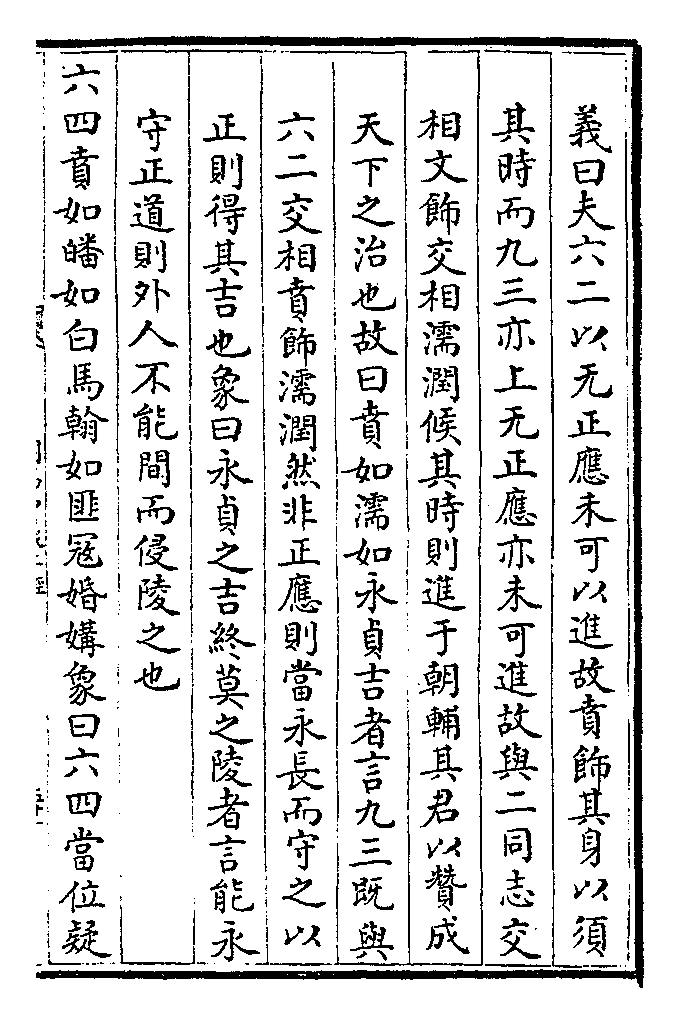 義曰夫六二以无正應未可以進故賁飾其身以須
其時而九三亦上无正應亦未可進故與二同志交
相文飾交相濡潤候其時則進于朝輔其君以贊成
天下之治也故曰賁如濡如永貞吉者言九三既與
六二交相賁飾濡潤然非正應則當永長而守之以
正則得其吉也象曰永貞之吉終莫之陵者言能永
守正道則外人不能間而侵陵之也
六四賁如皤如白馬翰如匪冦婚媾象曰六四當位疑